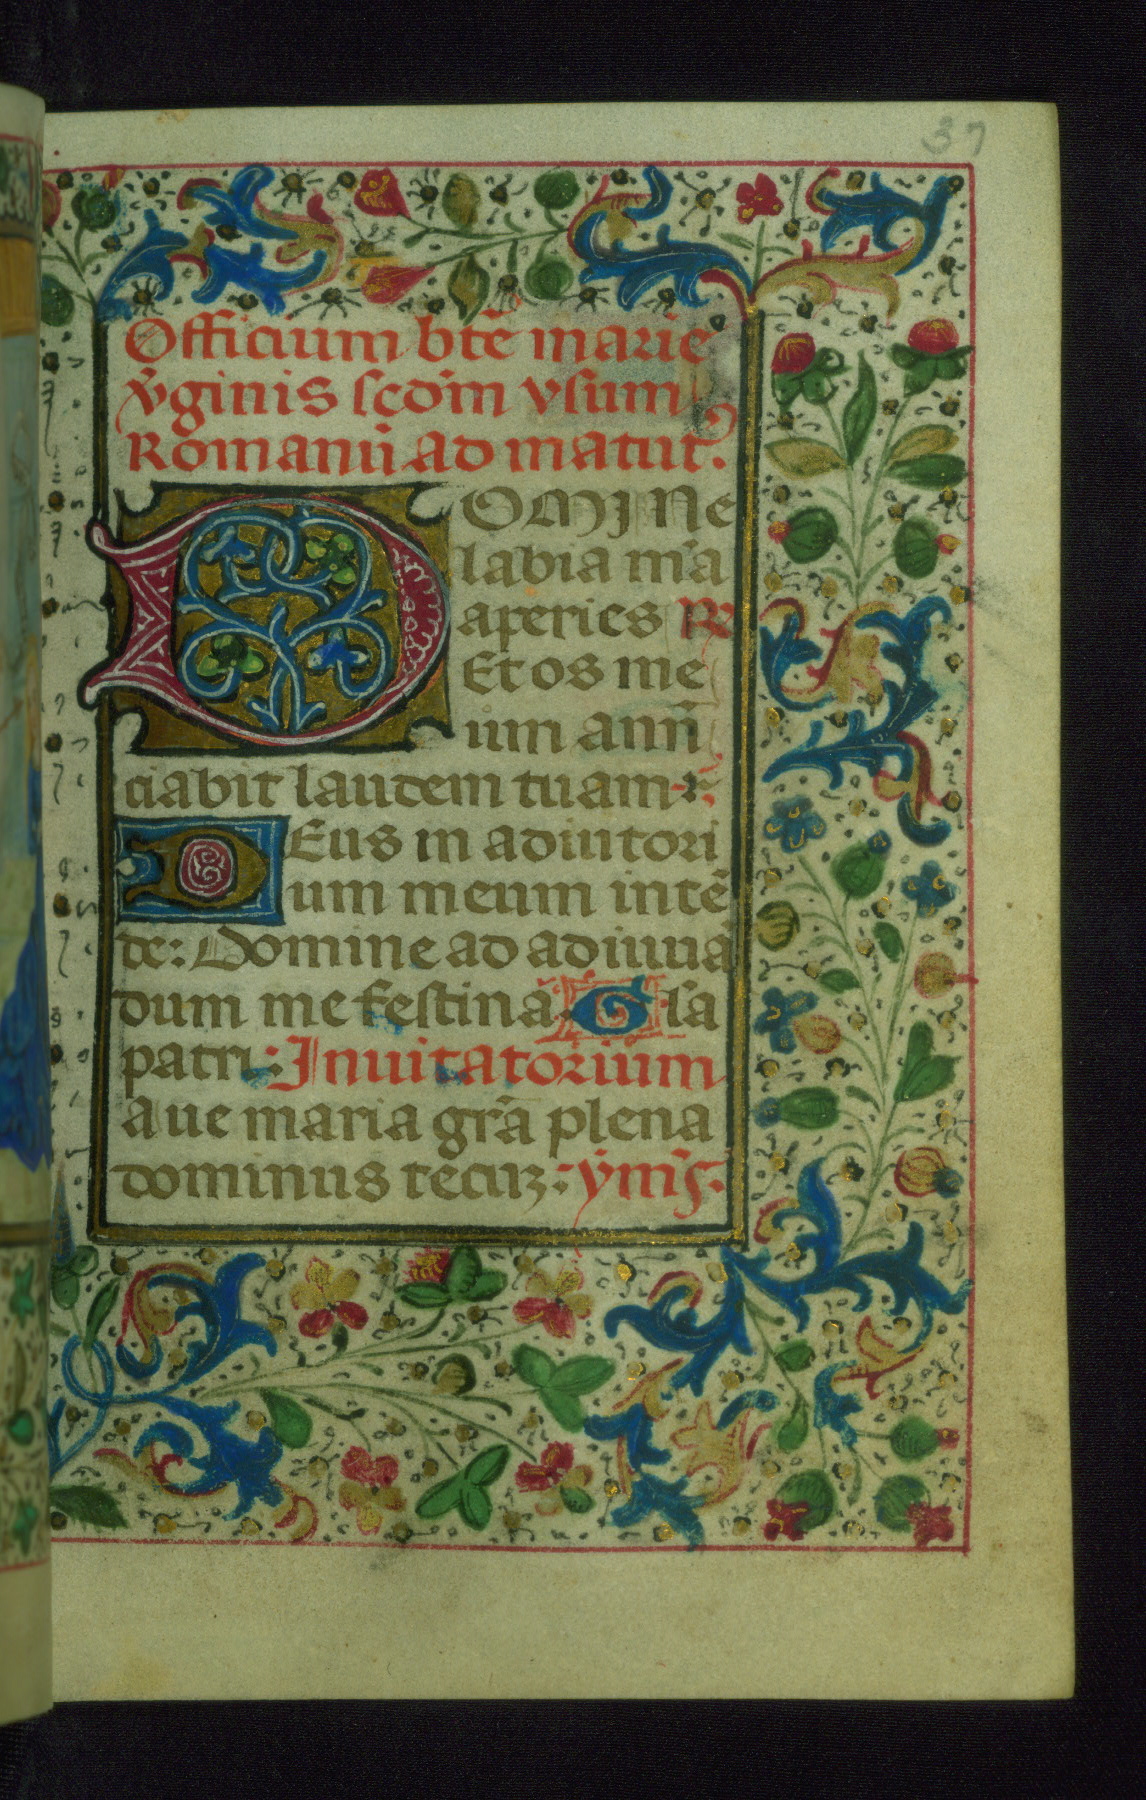 37
Officium bt̄e marie
v̇ginis scd̄m vsum
Romanū ad matut̉.
DOMINe
labia m̄a
aperies R
Et os me
um anū
ciabit laudem tuam
DEus in adiutori
um meum intē
de: Domine ad adiuuā
dum me festina. Gl̄a
patri: Inuitatorium
aue maria grā plena
dominus tecuz: ẏmꝰ.